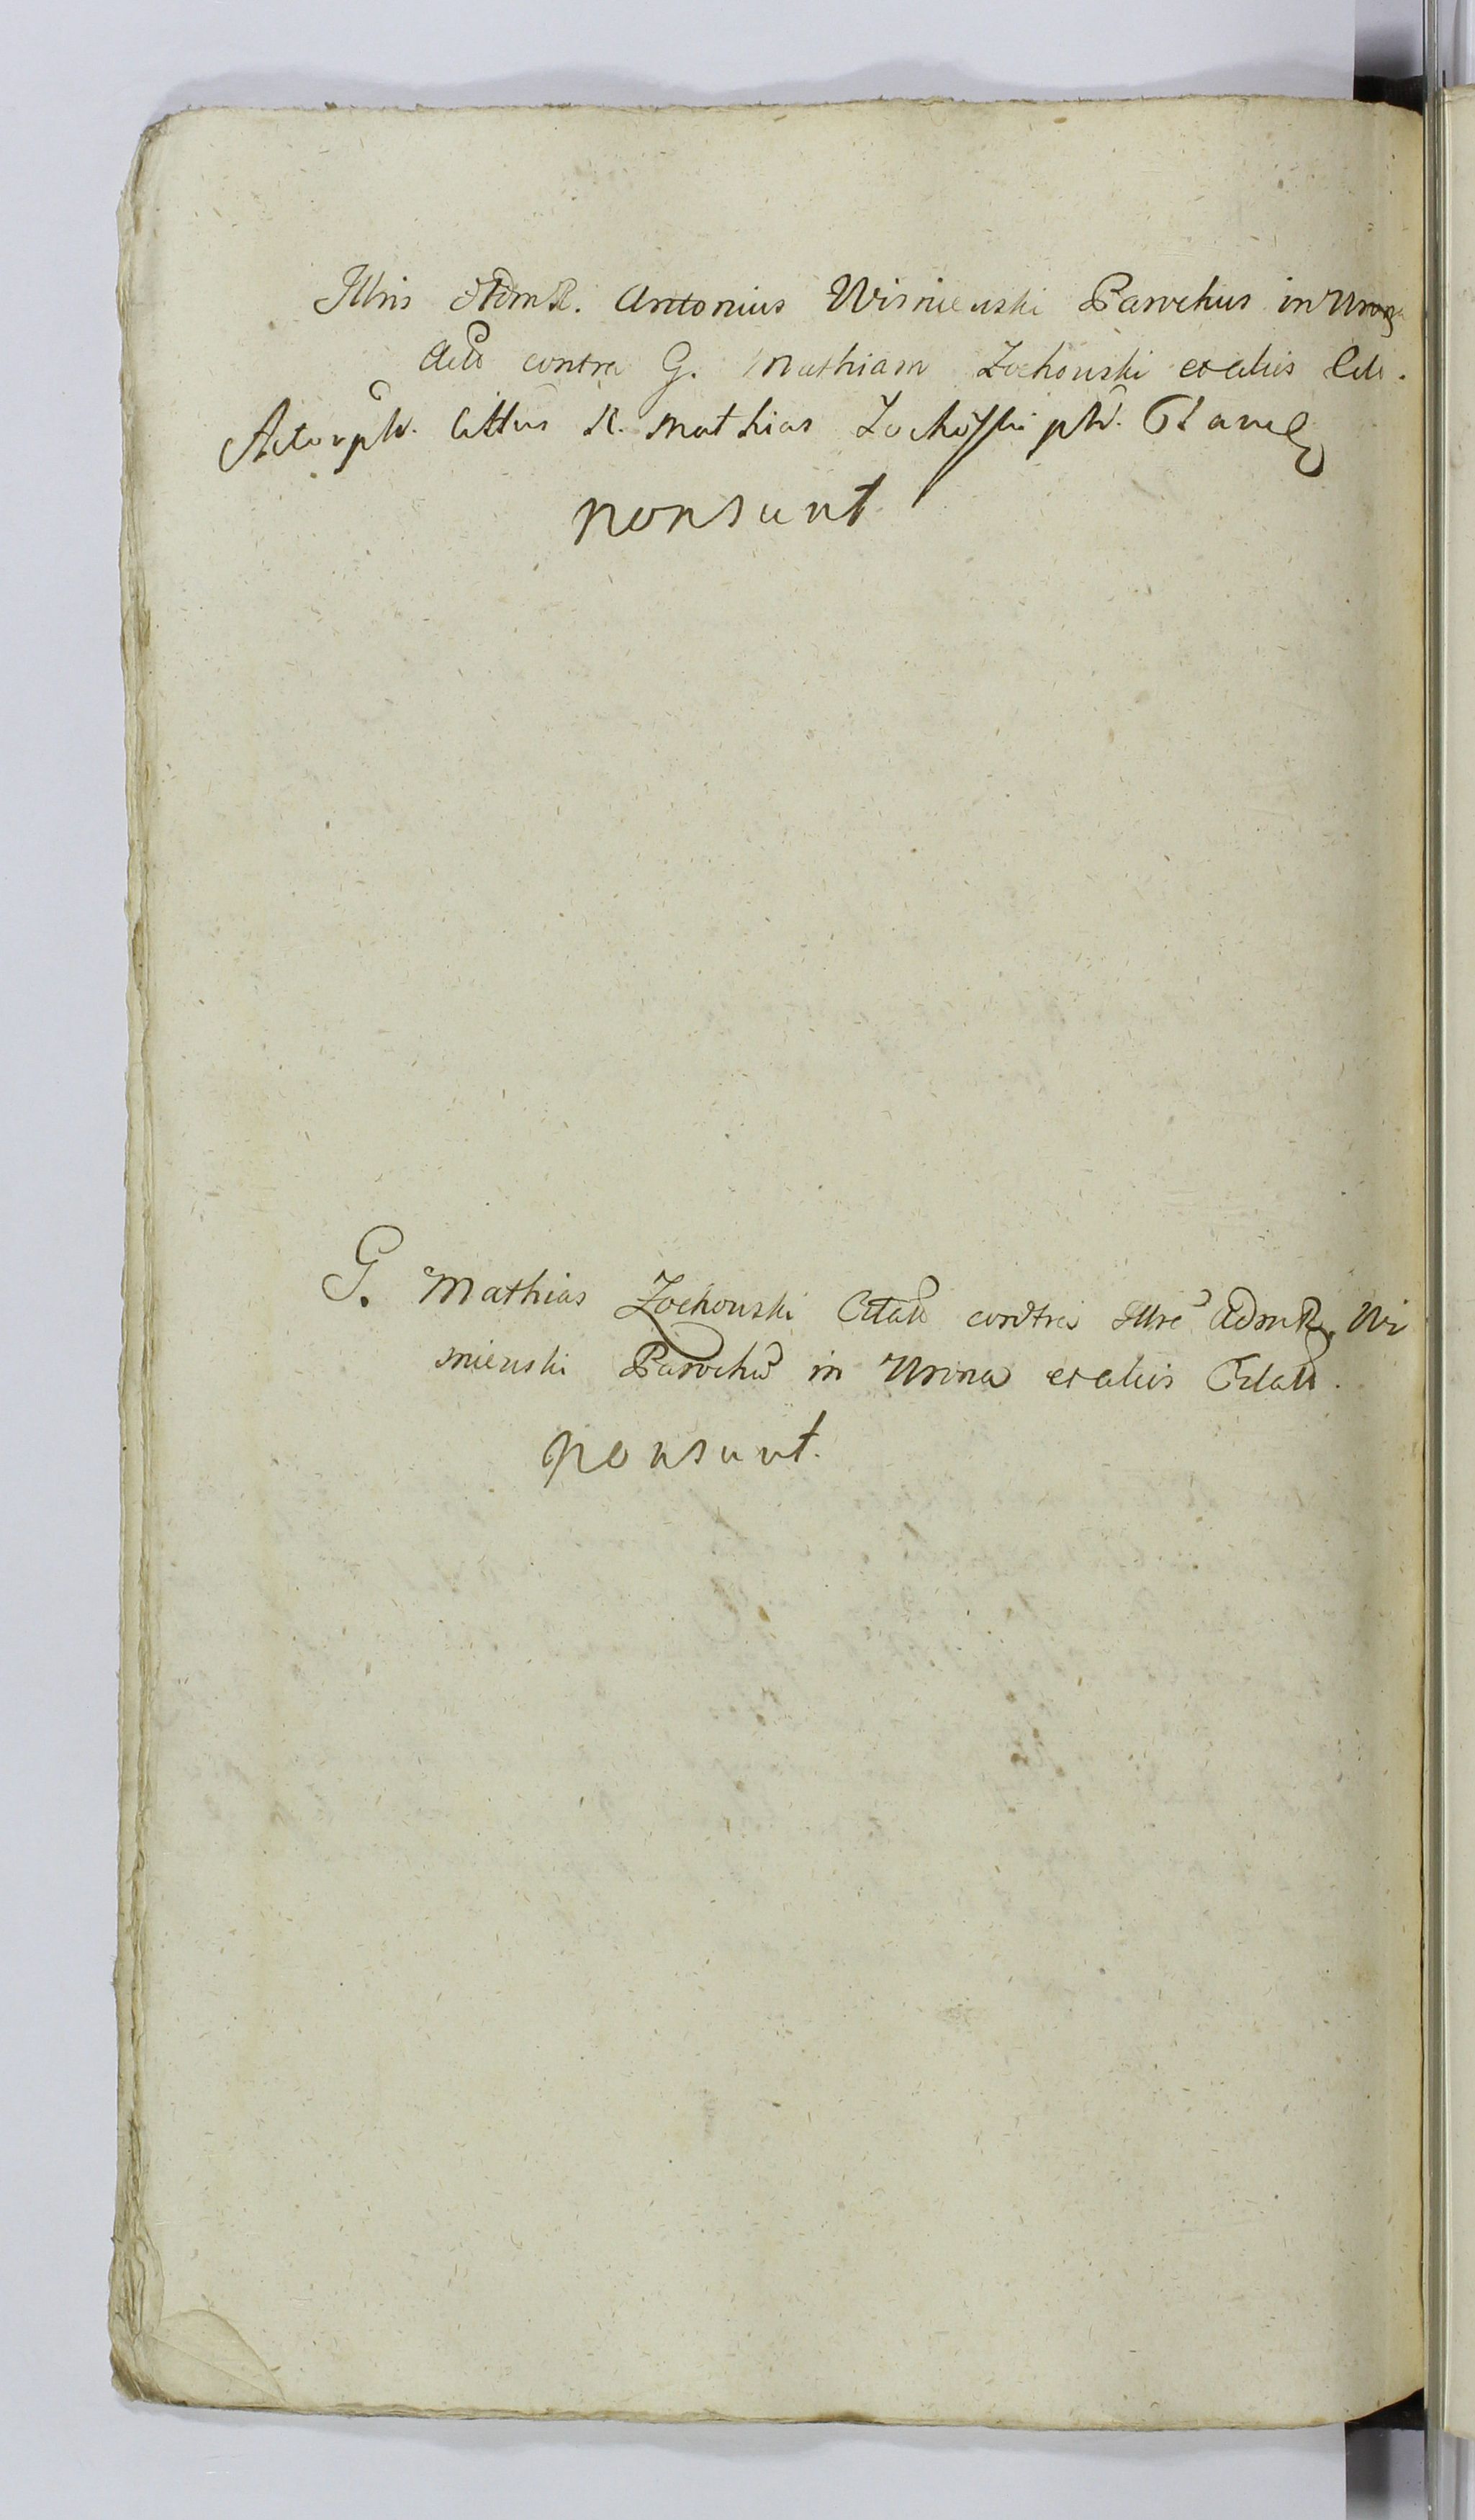 Illris AdmR. Antonius Wisniewski Parochus in Wrona
Actō contra G. Mathiam Zochowski et alios Cito.
Actor pls. Cittus R. Mathias Zochowski pls.
non sunt
G. Mathias Zochowski Citatō contra Illre AdmR. Wi
sniewski Parochū in Wrona et alios Citatō.
non sunt.